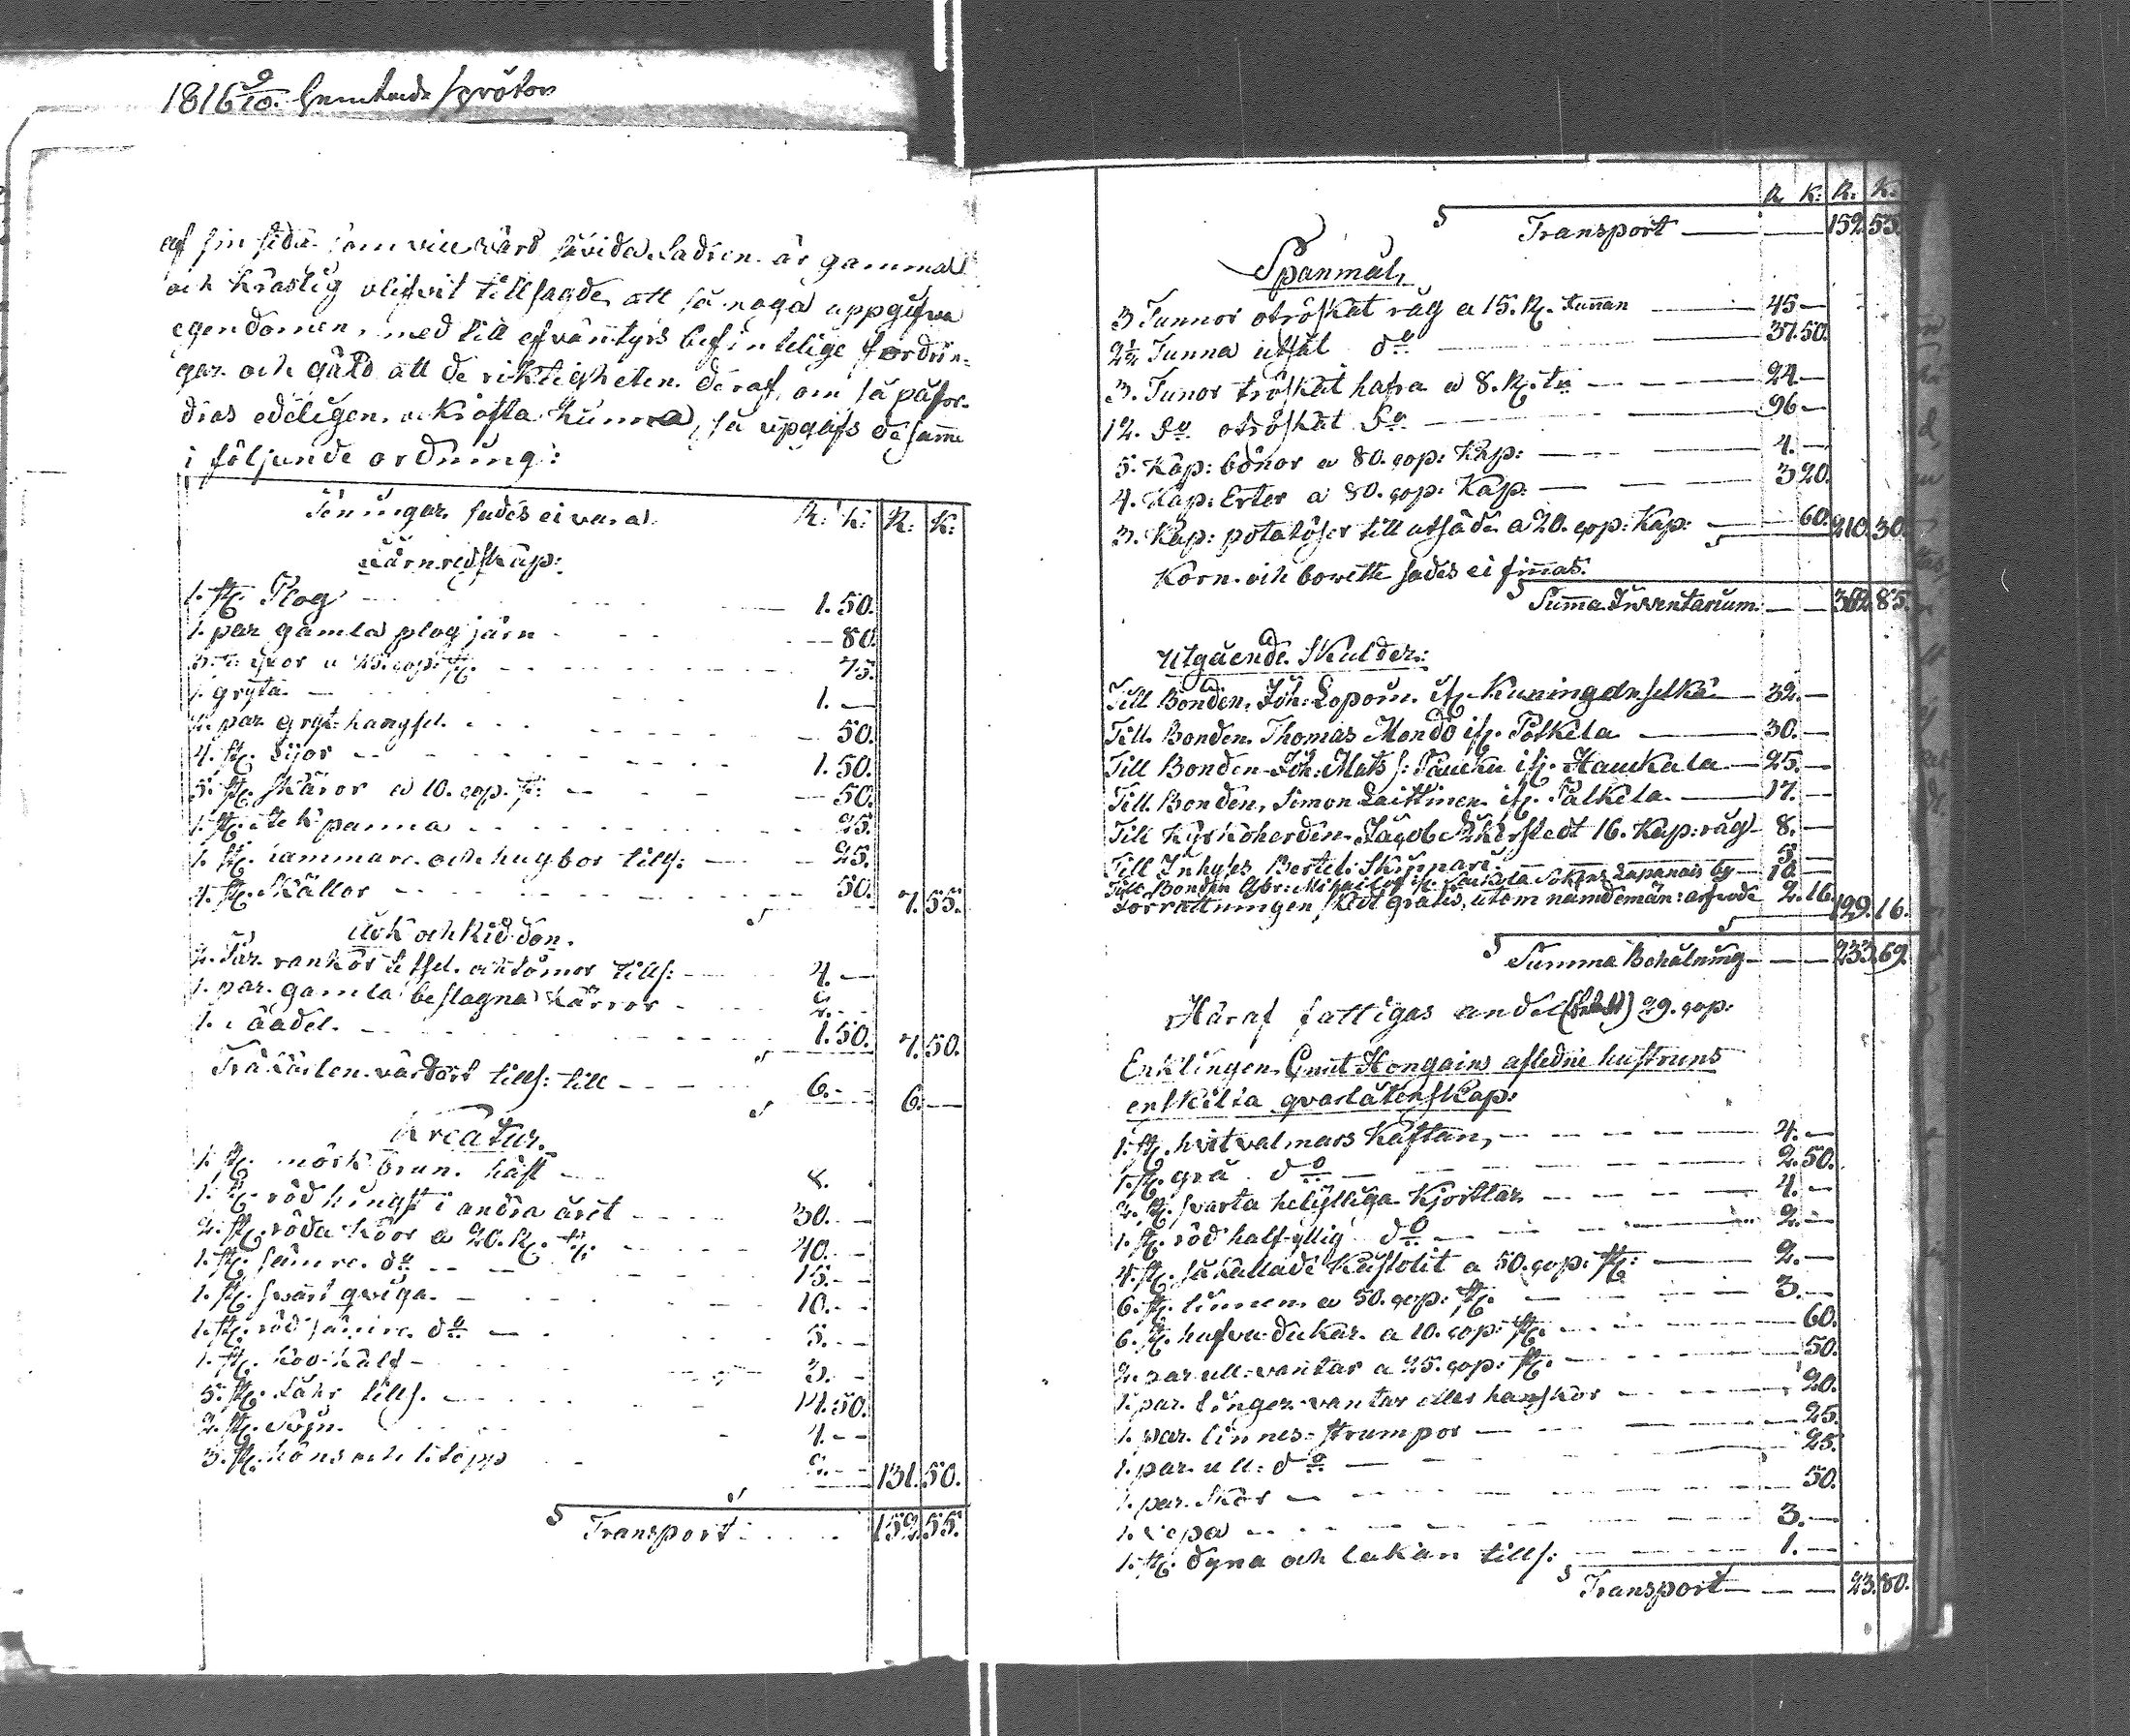 1816 9/10.
af sin sida som vice värd såvida fadren är gammal
och kraslig blifvit tillsagde att så noga uppgifva
egendomen, med till efventyrs befintelige fordrin-
gar och gäld att de riktigheten deraf, om så påfor-
dras edeligen bekräfta kunna, så upgafs de samme
i följande ordning:
R: K: R: K:
Peningar sades ei vara.
Järnredskap:
1. st. Plog 1.50.
1. par gamla plogjärn 80.
3. st. yxor a 25. cop: st. 75.
1. gryta 1.—
2. par gryt-hangsel 50.
4. st. Lijor 1.50.
5. st. skäror a 10. cop. st: 50.
1. st. stekpanna 25.
1. st. hammare och hugbor tills: 25.
4. st. Skällor 50. 7.55.
Åk och Kiddon.
2. Par rankor och tömor tills: 4.—
1. par gamla beslagna kärror 2.—
1. sadel 1.50. 7.50.
Träkärlen värdart tills: till 6.— 6.—
Kreatur.
1. st. mörkbrun häst 8.
1. st. röd hingst i andra året 30.—
2. st. röda Koor a 20. R. st: 40.—
1. st. sämre do 15.—
1. st. svart qviga 10.—
1. st. röd sämre do 5.—
1. st. Koo-Kalf 3.—
5. st. Fåhr tills. 14.50.
2. st. Svin 4.—
3. st. höns och 1. topp 2.— 131.50.
Transport 152.55.
R. K: R. K:
Transport 152.55.
Spanmål,
3 Tunnor otröskat råg a 15. R. tunnan 45—
2½ Tunna utsäl do 37.50.
3. Tunor tröskat hafra a 8. R. tn 24—
12. do otröskat do 96—
5. Kap: bönor a 80. cop: Kap: 4.—
4. Kap: Erter a 80. cop: Kap. 3 20.
3. Kap: potatöser till utsäde a 20. cop: Kap: 60. 210.30.
Korn och bowette sades ei finnas.
Summa Inventarium 362.85.
Utgående Skulder:
Till Bonden, Joh: Loponi if. Kuninganselkä 32.—
Till Bonden Thomas Mondo if. Pölkela 30.—
Till Bonden Joh: Mats s: Paucku if. Haukala 25.—
Till Bonden, Simon Laittinen if. Palkela 17.—
Till Kyrkoherden Jacob Åkerstedt 16. Kap: råg 8.—
Till Inhyses Bertel: Skinnari 5—
Till Bonden Gbr: Mihailof if. Sokns Lapanais by 10—
Förrattningen, skedt gratis, utom nämdemän: arfvode 2.16. 129.16.
Summa Behålning 233.69.
Häraf fattigas andel 29. cop:
Enklingen Gnut Hongains afledne hustruns
enskilta qvarlåtenskap:
1. st. hvit valmars Kaftan, 4.—
1. st. grå do 2.50.
2. st. svarta helylliga Kjortlar 4.—
1. st. röd half-yllig do 2.—
4. st. så Kallade Kustolit a 50. cop: st: 2.—
6. st. linnen a 50. cop: st. 3.—
6. st. hufvu-dukar a 10. cop: st. 60.
2. par ull-vantar a 25. cop: st. 50.
1. par finger-vantar eller hanskor 20.
1. par linnes-strumpor 25.
1. par ull: do 25.
1. par Skor 50.
1. 3.—
1. st. dyna och lakan tills: 1.—
Transport 23.80.